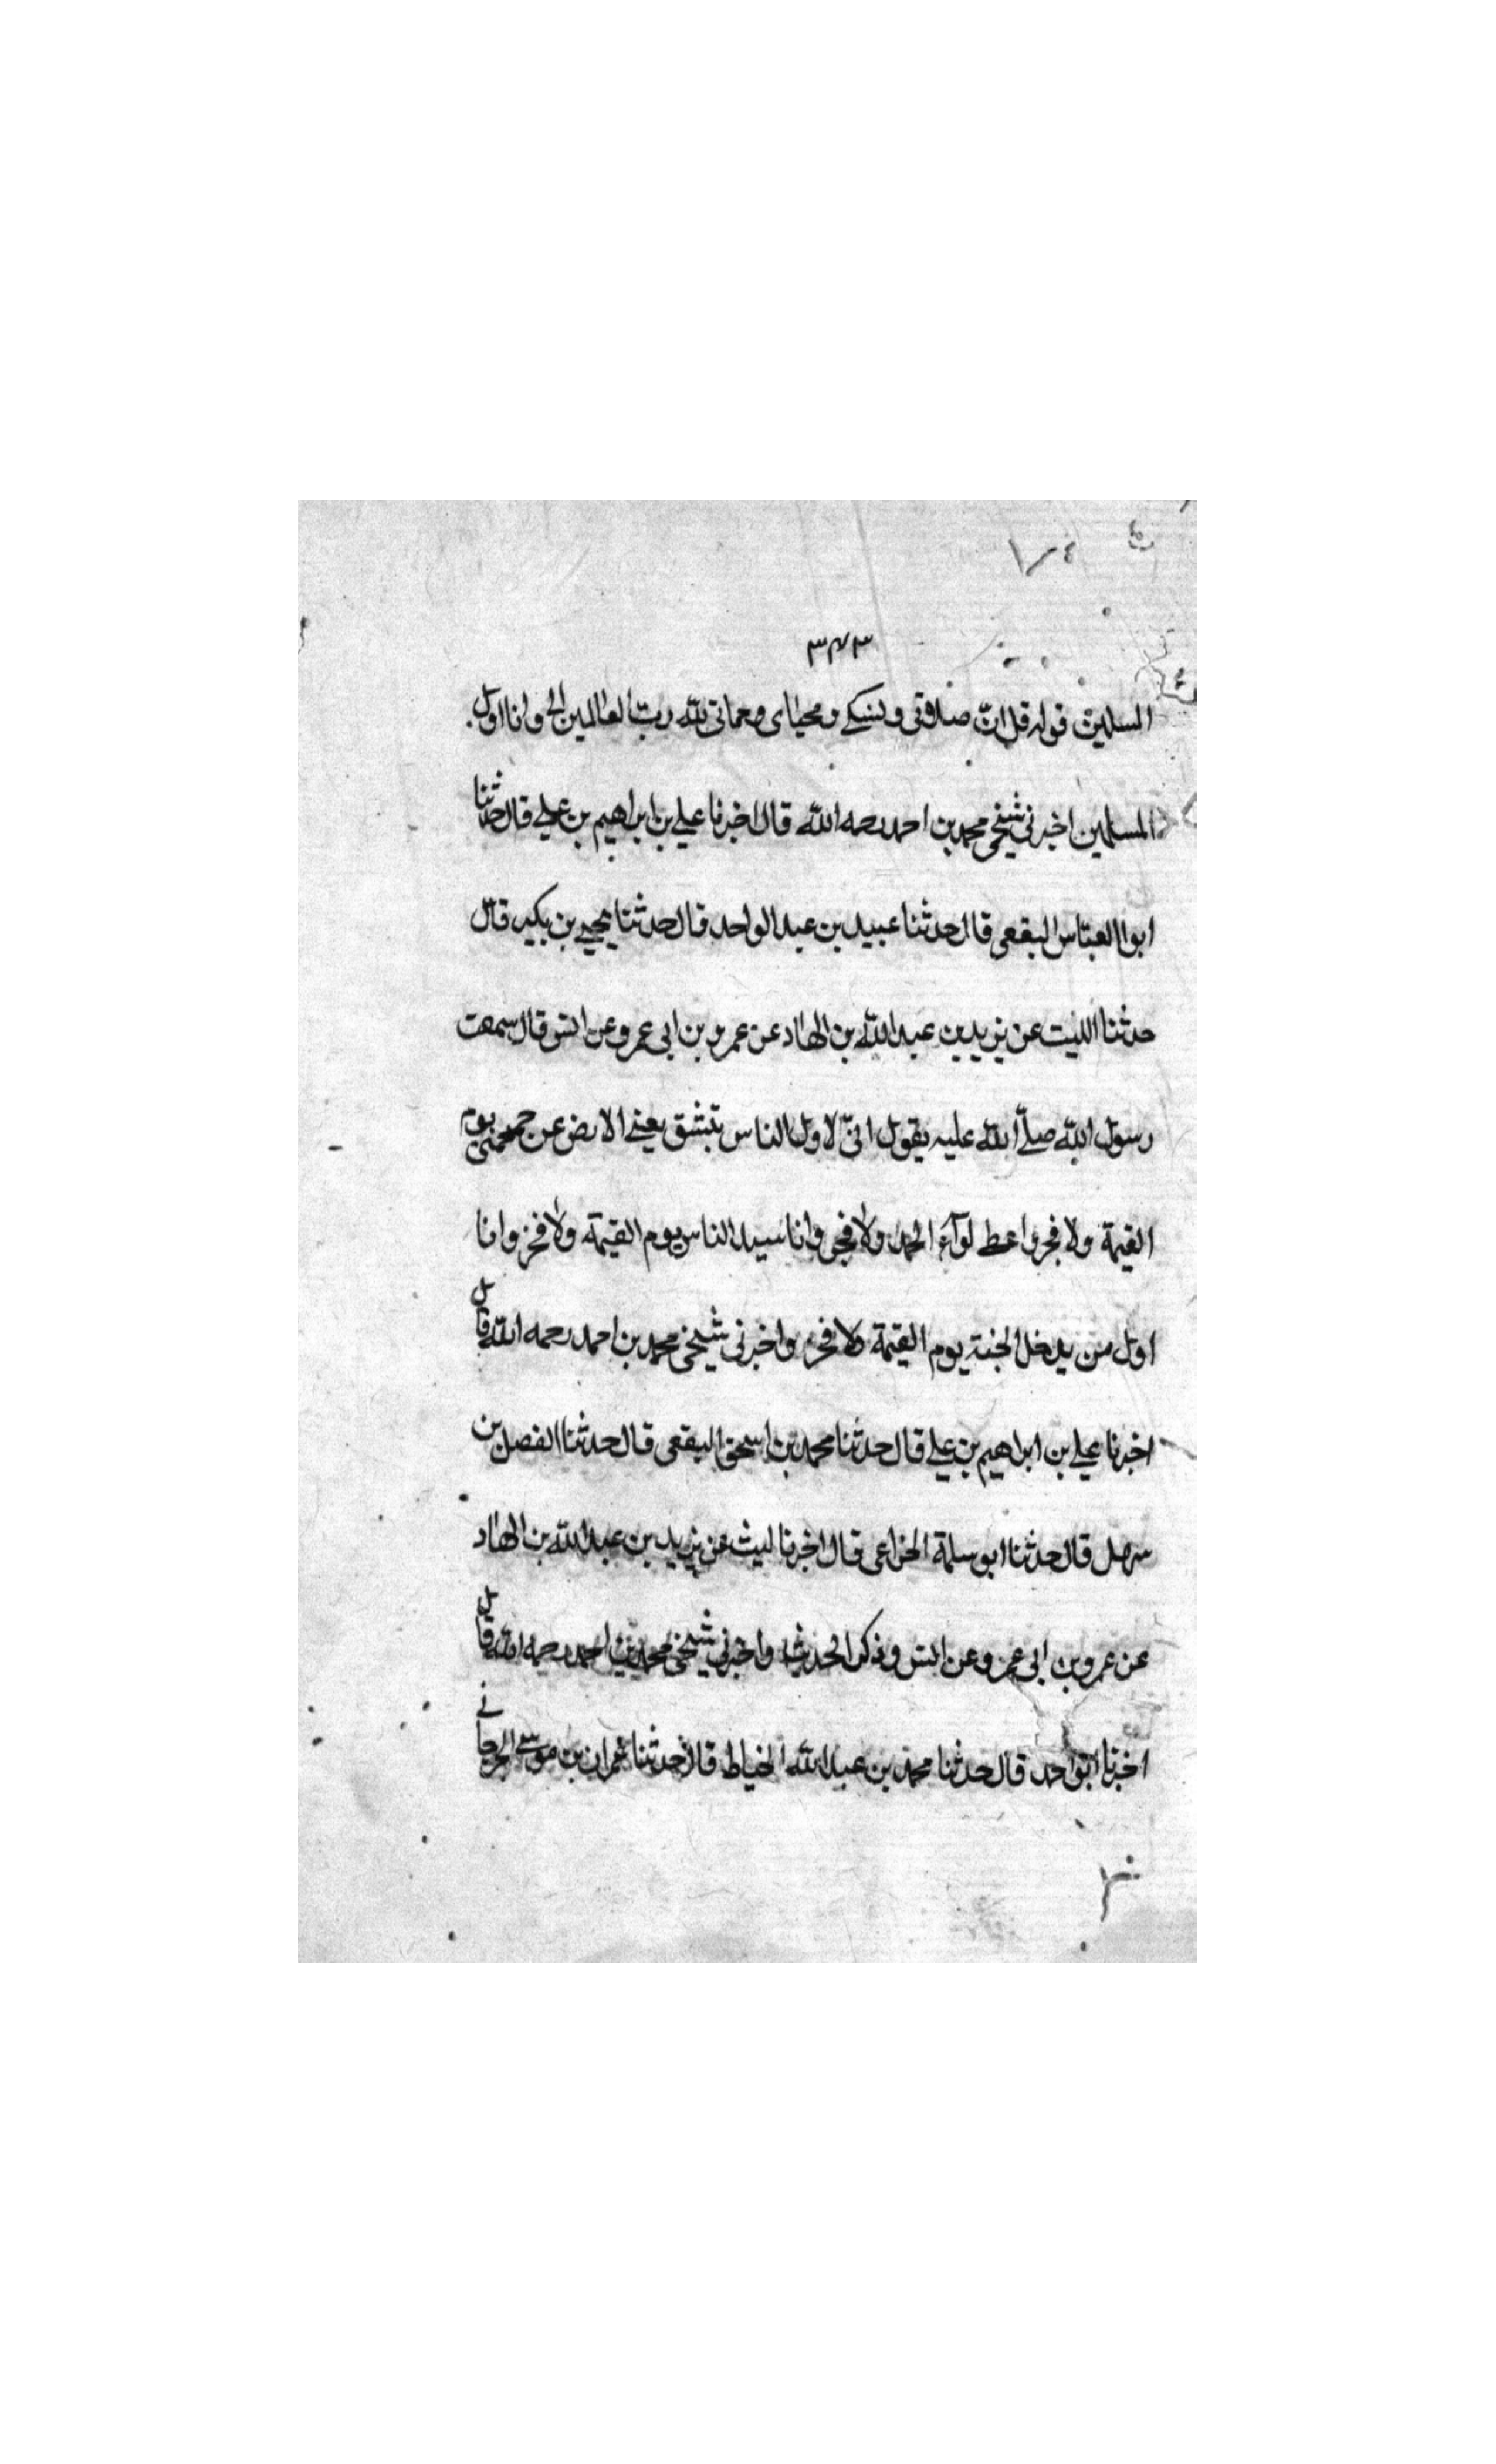 ٣٧٣
المسلمين قوله قل ان صلاوتي ونسكي ومحياى ومماتي لله رب العالمين الخ وانا اول
المسلمين اخبرني شيخي محمد بن احمد رحمه الله قال اخبرنا علي بن ابراهيم بن علي قال حدثنا
ابوا العباس البقعي قال حدثنا عبيد بن عبد الواحد قال حدثنا يحيي بن بكير قال
حدثنا الليث عن يزيد بن عبد الله بن الهاد عن عمرو بن ابي عمرو عن انس قال سمعت
رسول الله صلّے الله عليه يقول انّي لاول الناس تنشق يعني الارض عن جمجمتي يوم
القيمة ولا فخر واعطے لوآء الحمد ولا فخر وانا سيد الناس يوم القيمة ولا فخر وانا
اول من يدخل الجنة يوم القيمة ولا فخر واخبرني شيخي محمد بن احمد رحمه الله قال
اخبرنا علي بن ابراهيم بن علي قال حدثنا محمد بن اسحق البقعي قال حدثنا الفضل بن
سهل قال حدثنا ابو سلمة الخزاعي قال اخبرنا ليث عن يزيد بن عبد الله بن الهاد
عن عمرو بن ابي عمرو عن انس وذكر الحديث واخبرني شيخي محمد بن احمد رحمه الله قال
اخبرنا ابو احمد قال حدثنا محمد بن عبد الله الخياط قال حدثنا عمران بن موسے الجرجاني